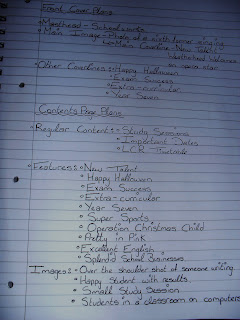 Front Cover Plans
• Masthead - School
• Main Image - Photo of a ninth former singing
↳ Main Coverline - New Talent
• Other Coverlines: • Happy Halloween
• Exam Success
• Extra-curricular
• Year Seven
Contents Page Plans
• Regular Content: • Study Sessions
• Important Dates
• LCR
• Features: • New Talent
• Happy Halloween
• Exam Success
• Extra-curricular
• Year Seven
• Super Sports
• Operation Christmas Child
• Pretty in Pink
• Excellent English
• Splendid School Businesses
Images: • Over the shoulder shot of someone writing
• Happy Student with results
• Small Study Session
• Students in a classroom on computers